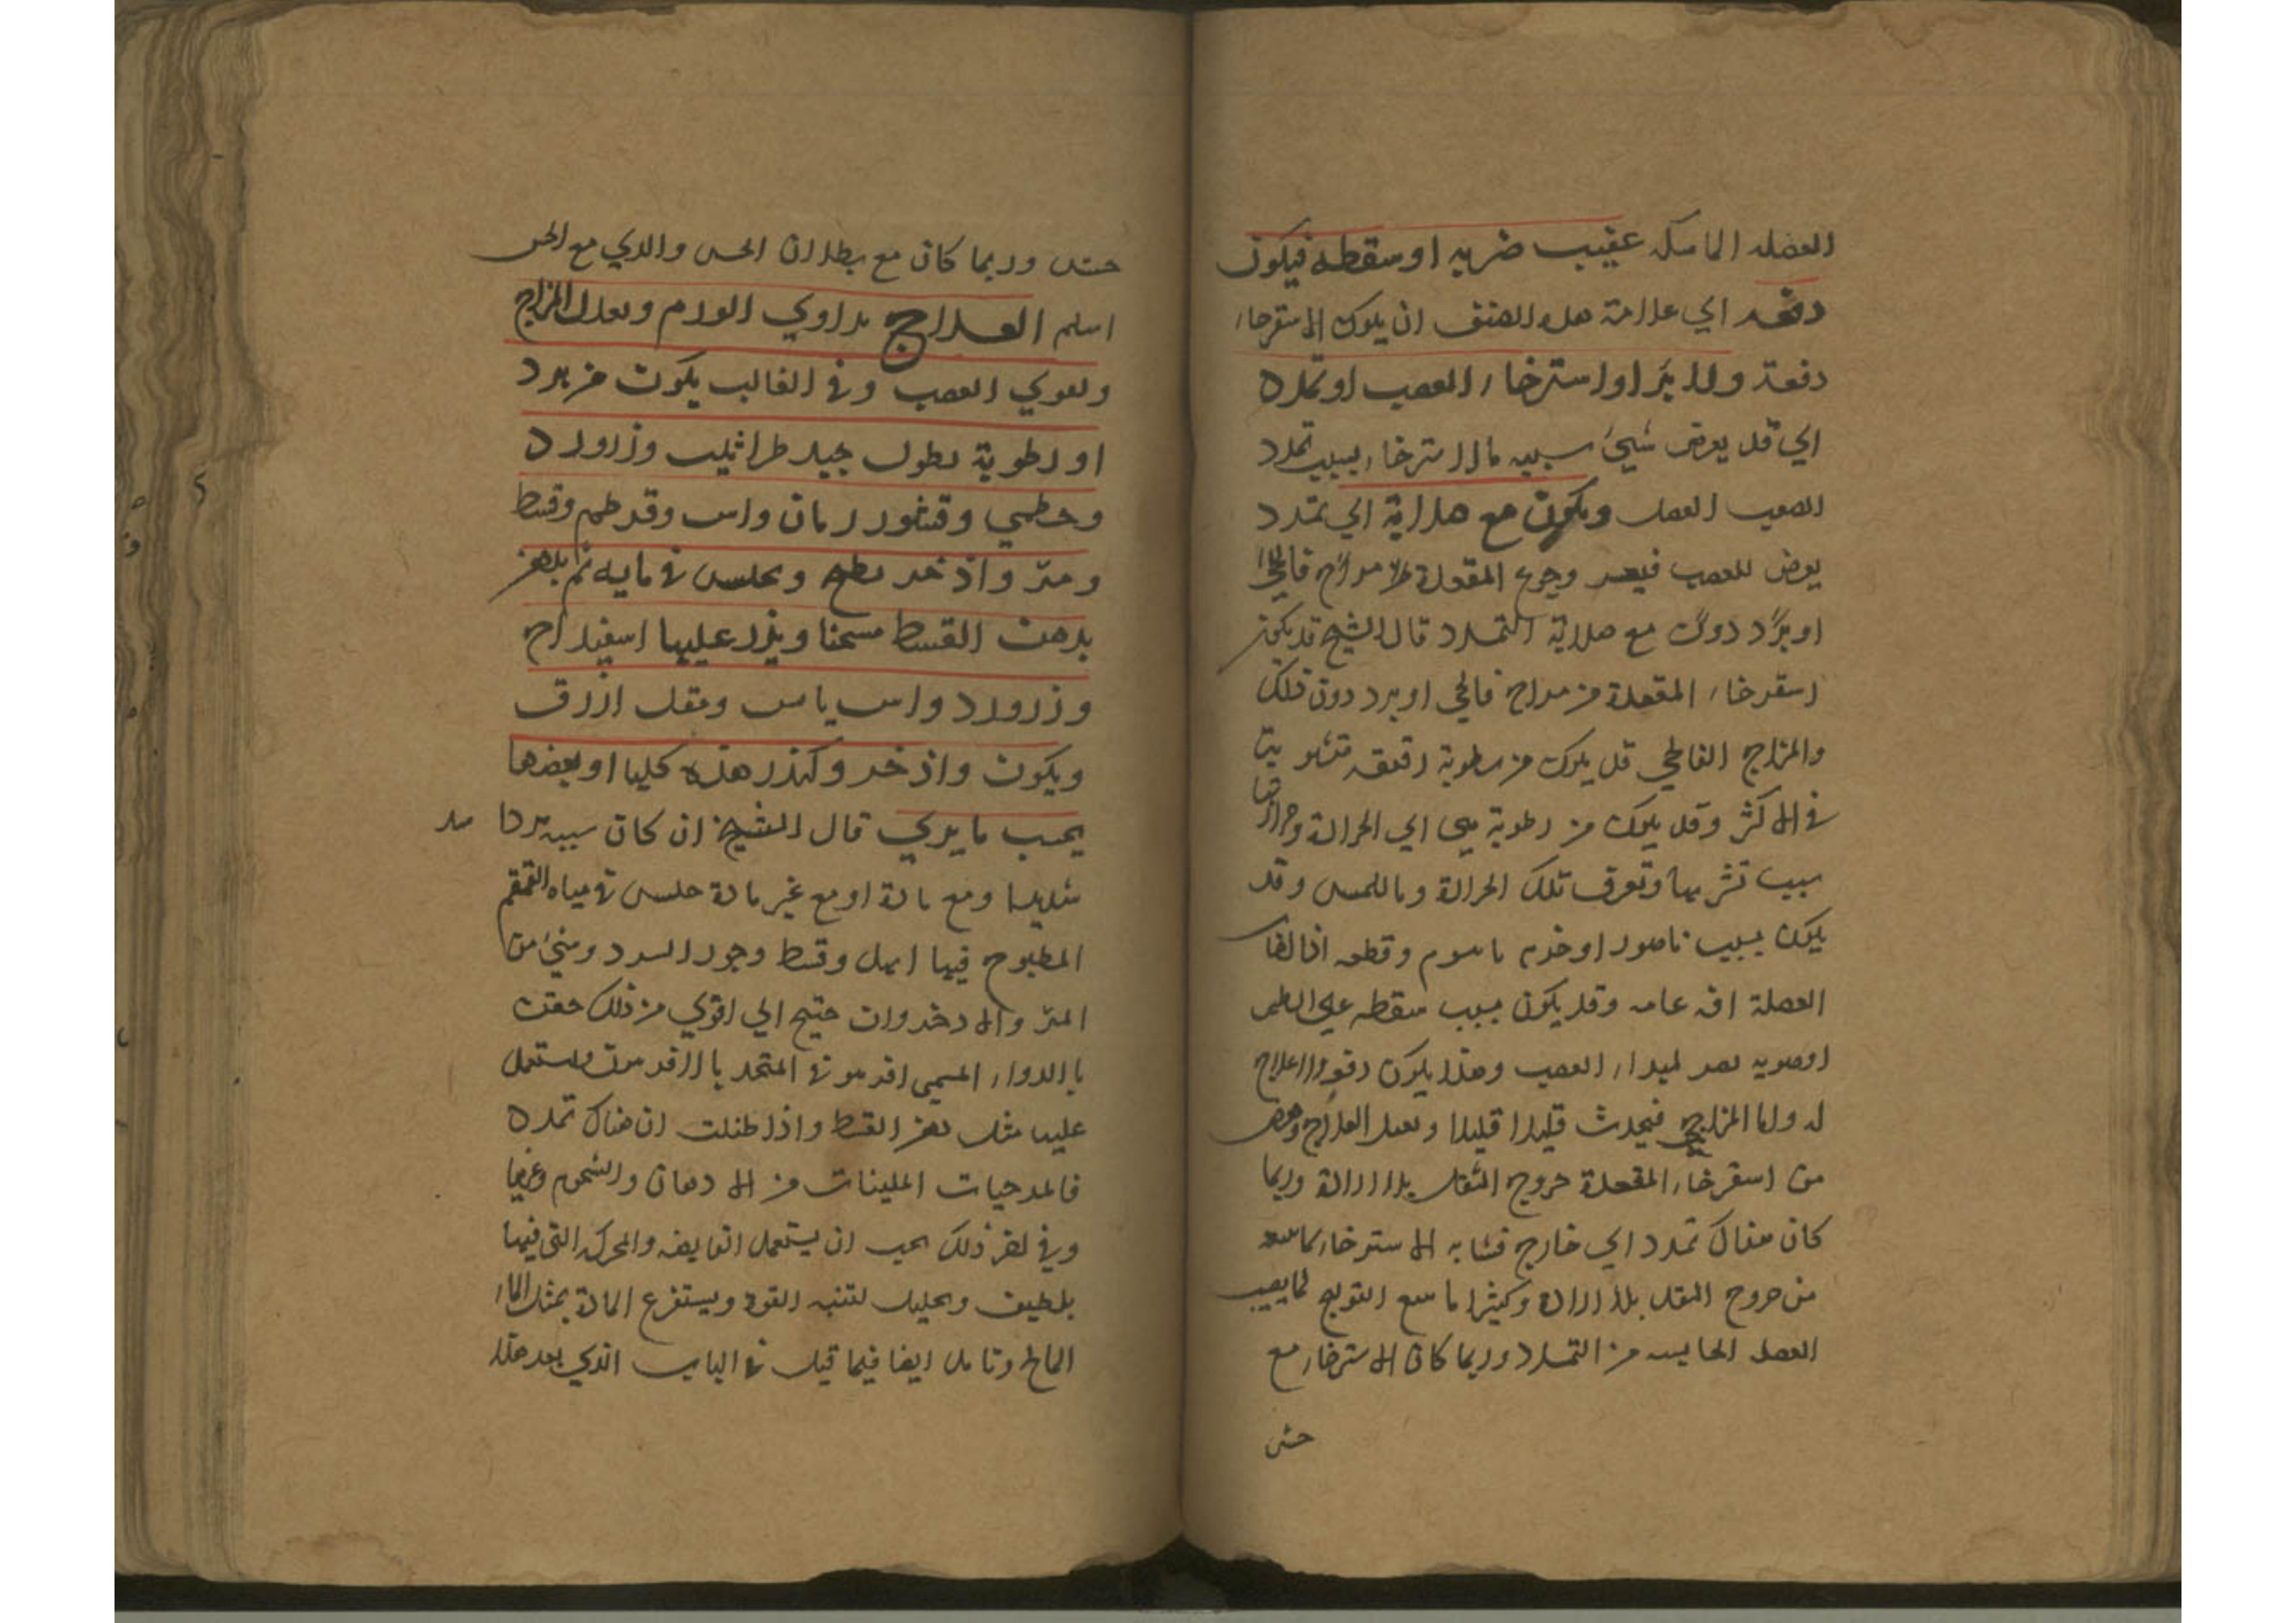 العضله الماسكه عقيب ضربه او سقطه فيكون
دفعه اي علامة هذا الصنف ان يكون الاسترخاء
دفعة ولا يبرا واسترخاء العصب او تمدده
اي قد يعرض شيئ سببه مالاسترخاء بسبب تمدد
العصب العضل ويكون مع صلابة اي تمدد
يعرض للعصب المقعدة مزاج فالجي
او برد دون مع صلابة التمدد قال الشيخ قد يكون من
استرخاء المقعدة من مزاج فالجي او برد دون ذلك
والمزاج الفالجي قد يكون من رطوبة رقيقه
في الاكثر وقد يكون من رطوبة الي الحرارة
سبب تشربها وتعرف تلك الحرارة وباللمس وقد
يكون بسبب ناصور او خزم باسور وقطعه اذا لقا
العضلة افه عامه وقد يكون بسبب سقطه علي الظهر
العصب وهذا يكون دفعة ولا علاج
له واما المزاج فيحدث قليلا قليلا ويقبل العلاج
من استرخاء المقعدة خروج الثفل بلا ارادة وربما
كان هناك تمدد الي خارج فشابه الاسترخاء
من خروج الثفل بلا ارادة وكثيرا ما التورم لما يصيب
العضل الحابسه من التمدد وربما كان الاسترخاء مع
حس
حس وربما كان مع بطلان الحس والذي مع الحس
اسلم العلاج يداوي الورم ويعدل المزاج
ويقوي العصب وفي الغالب يكون من برد
او رطوبة بطول جيد طراثيث وزرورد
وخطمي وقشور رمان واس وقرطم وقسط
ومر واذخر يطبخ ويجلس في مايه ثم يدهن
بدهن القسط مسخنا ويذر عليها اسفيداج
وزرورد واس يابس ومقل ازرق
ويكون واذخر وكندر هذه كلها او بعضها
بحسب ما يري قال الشيخ ان كان سببه بردا
شديدا ومع مادة او مع غير مادة جلس في مياه القمقم
المطبوخ فيها ابهل وقسط وجوز السرو وشيئ من
المر والاذخر وان احتيج الي اقوي من ذلك حقنت
بالدواء المسمي المتخذ بالافربيون ويستعمل
عليها مثل دهن القسط واذا ظننت ان هناك تمدد
فالمرخيات الملينات من الادهان والشحوم وغيرها
وفي اخر ذلك يجب ان يستعمل القابضه والمحركه التي فيها
تلطيف وتحليل لتنبه القوة ويستفرغ المادة بمثل الماء
المالح وتامل ايضا فيما قيل في الباب الذي بعد هذا